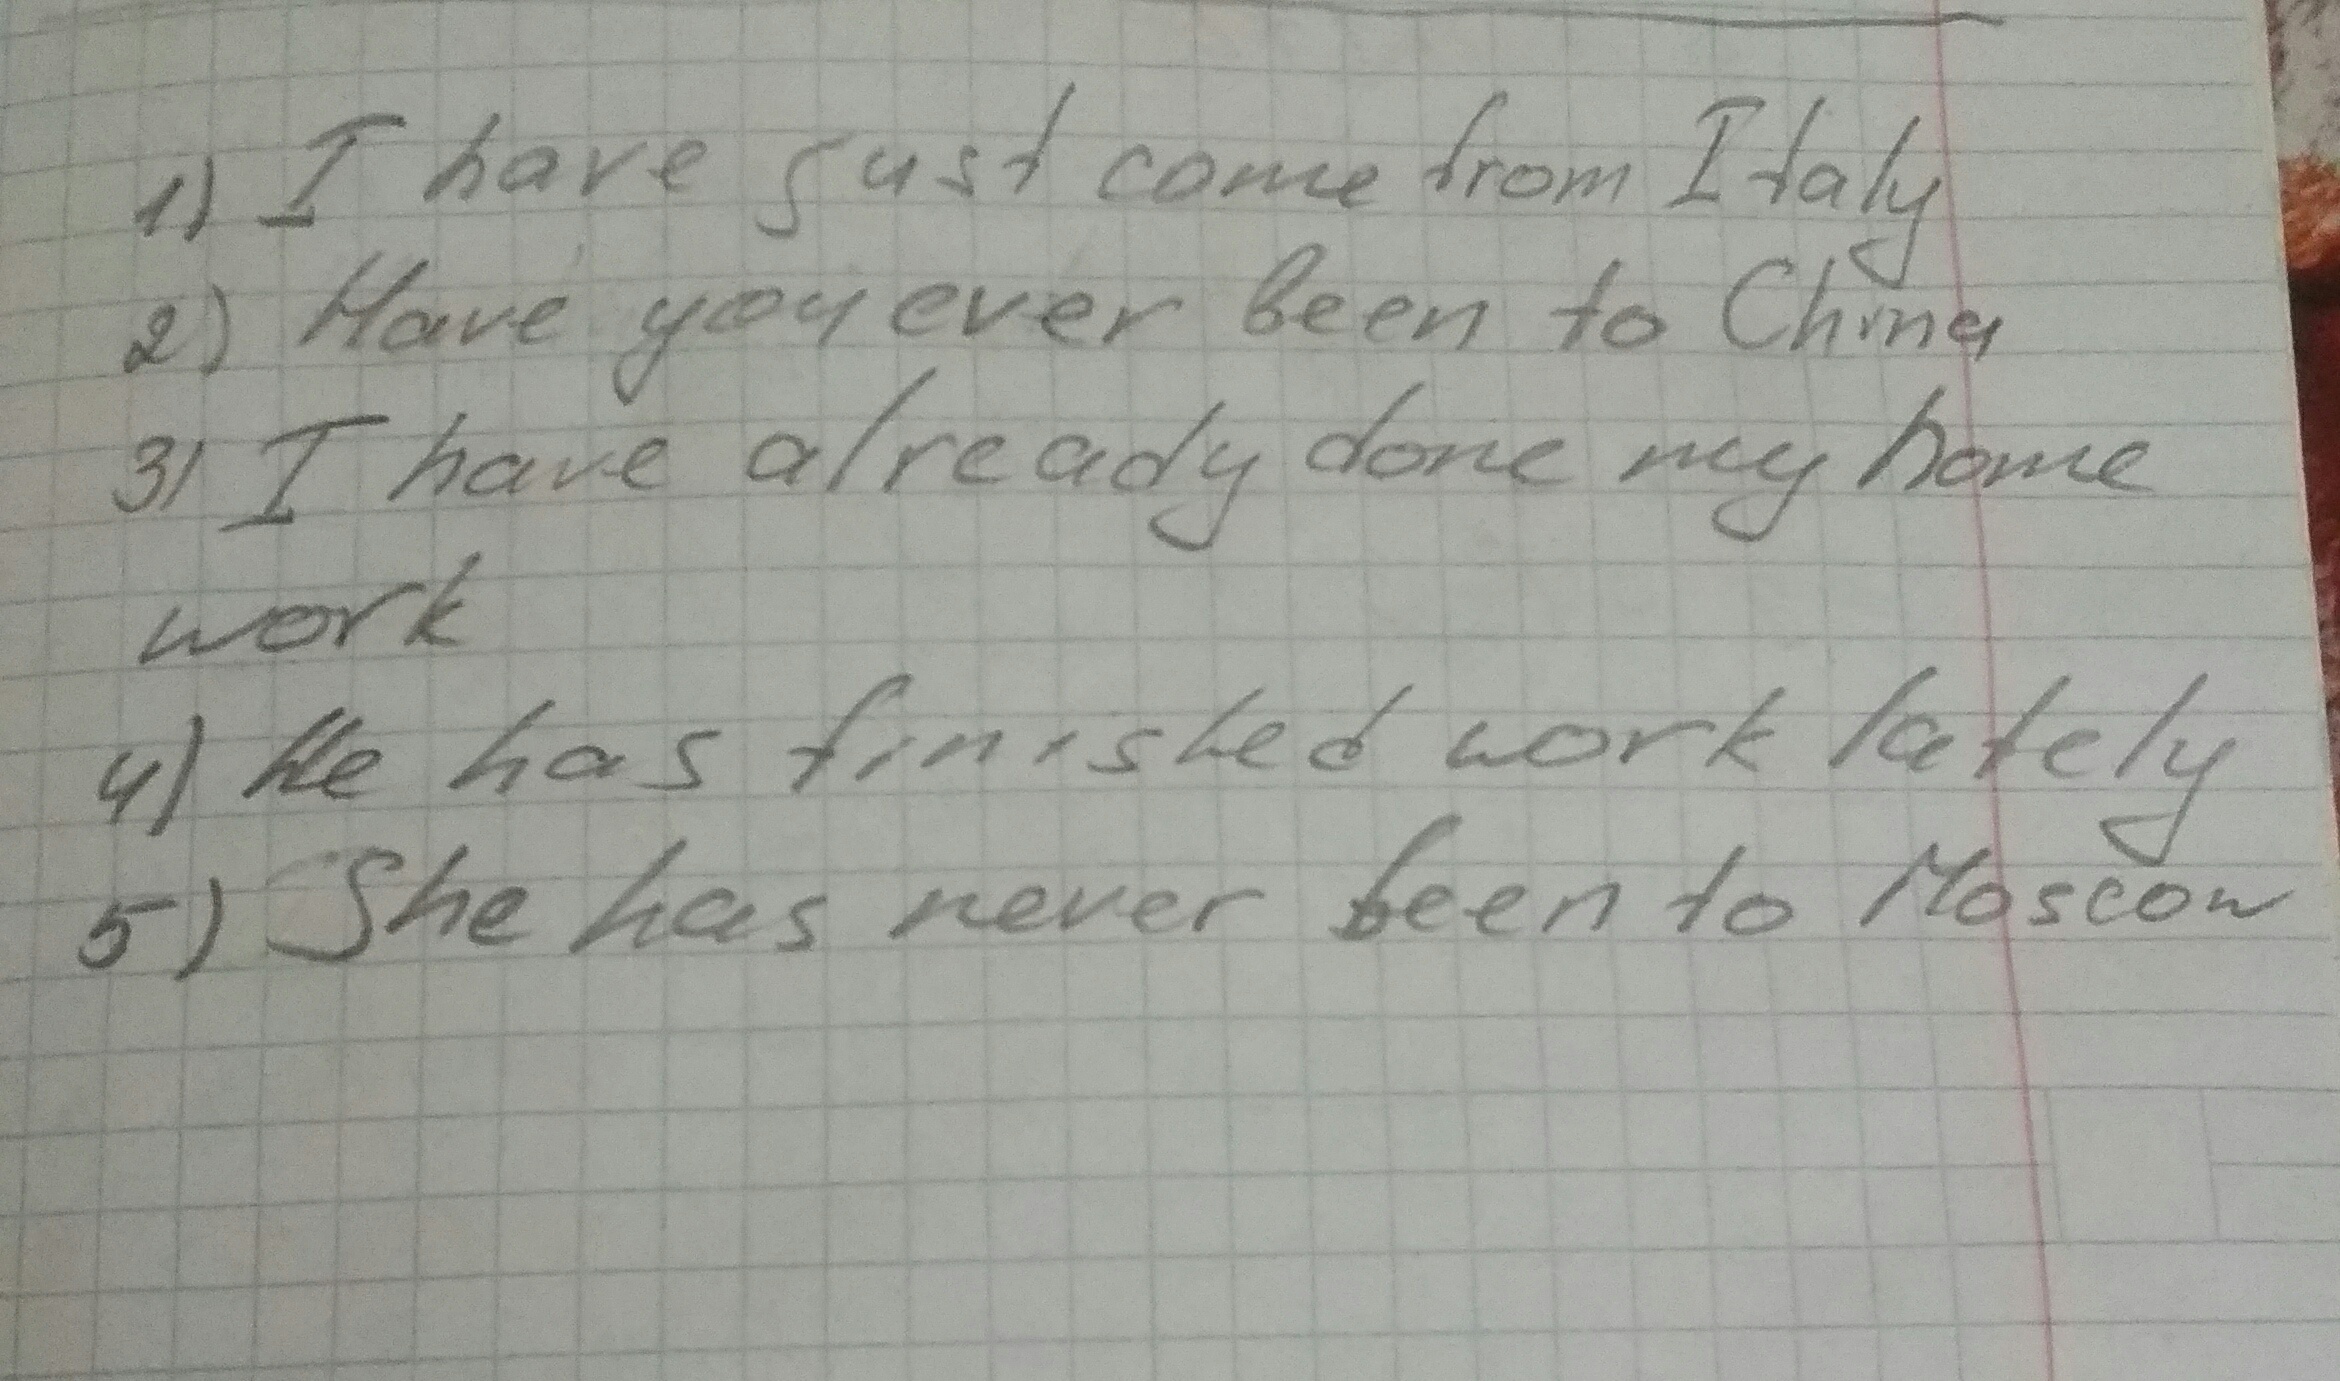 1) I have just come from Italy
2) Have you ever been to China
3) I have already done my home
work
4) He has finished work lately
5) She has never been to Moscow